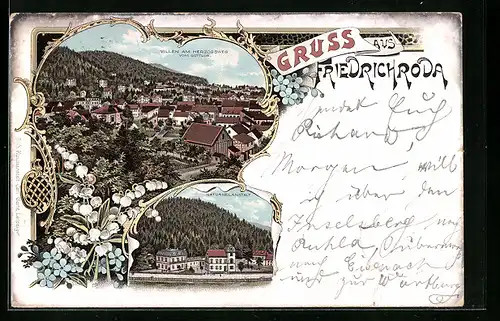 GRUSS AUS
FRIEDRICHRODA
VILLEN AM HERZOGSWEG
VOM GOTTLOB.
NATURHEILANSTALT
sendet Euch
Richard
Morgen will
ich über den
Inselsberg nach
Ruhla
nach Eisenach
und zur Wartburg